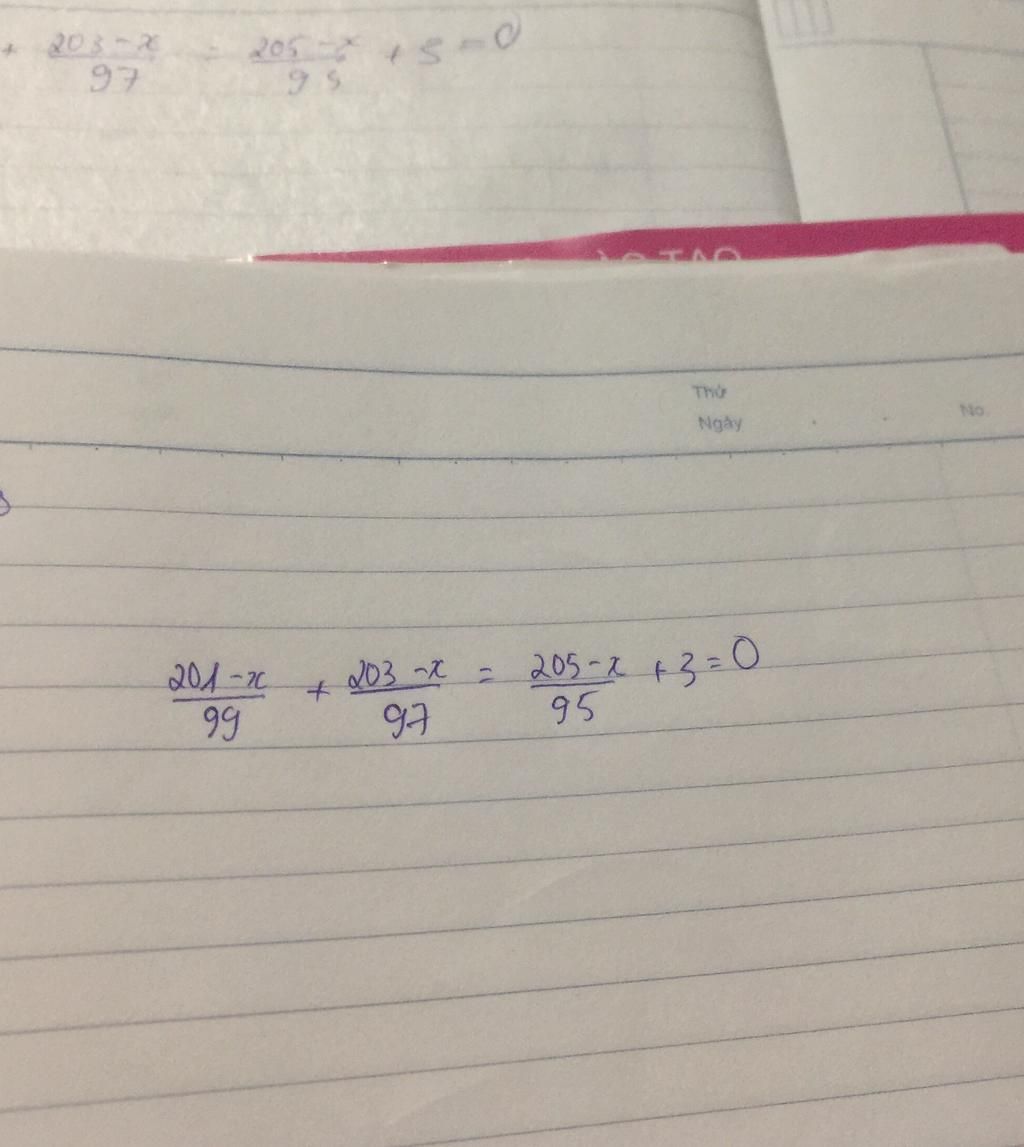 + 203-x/97 = 205-x/95 + 3 = 0
Thứ
Ngày
No
201-x/99 + 203-x/97 = 205-x/95 + 3 = 0